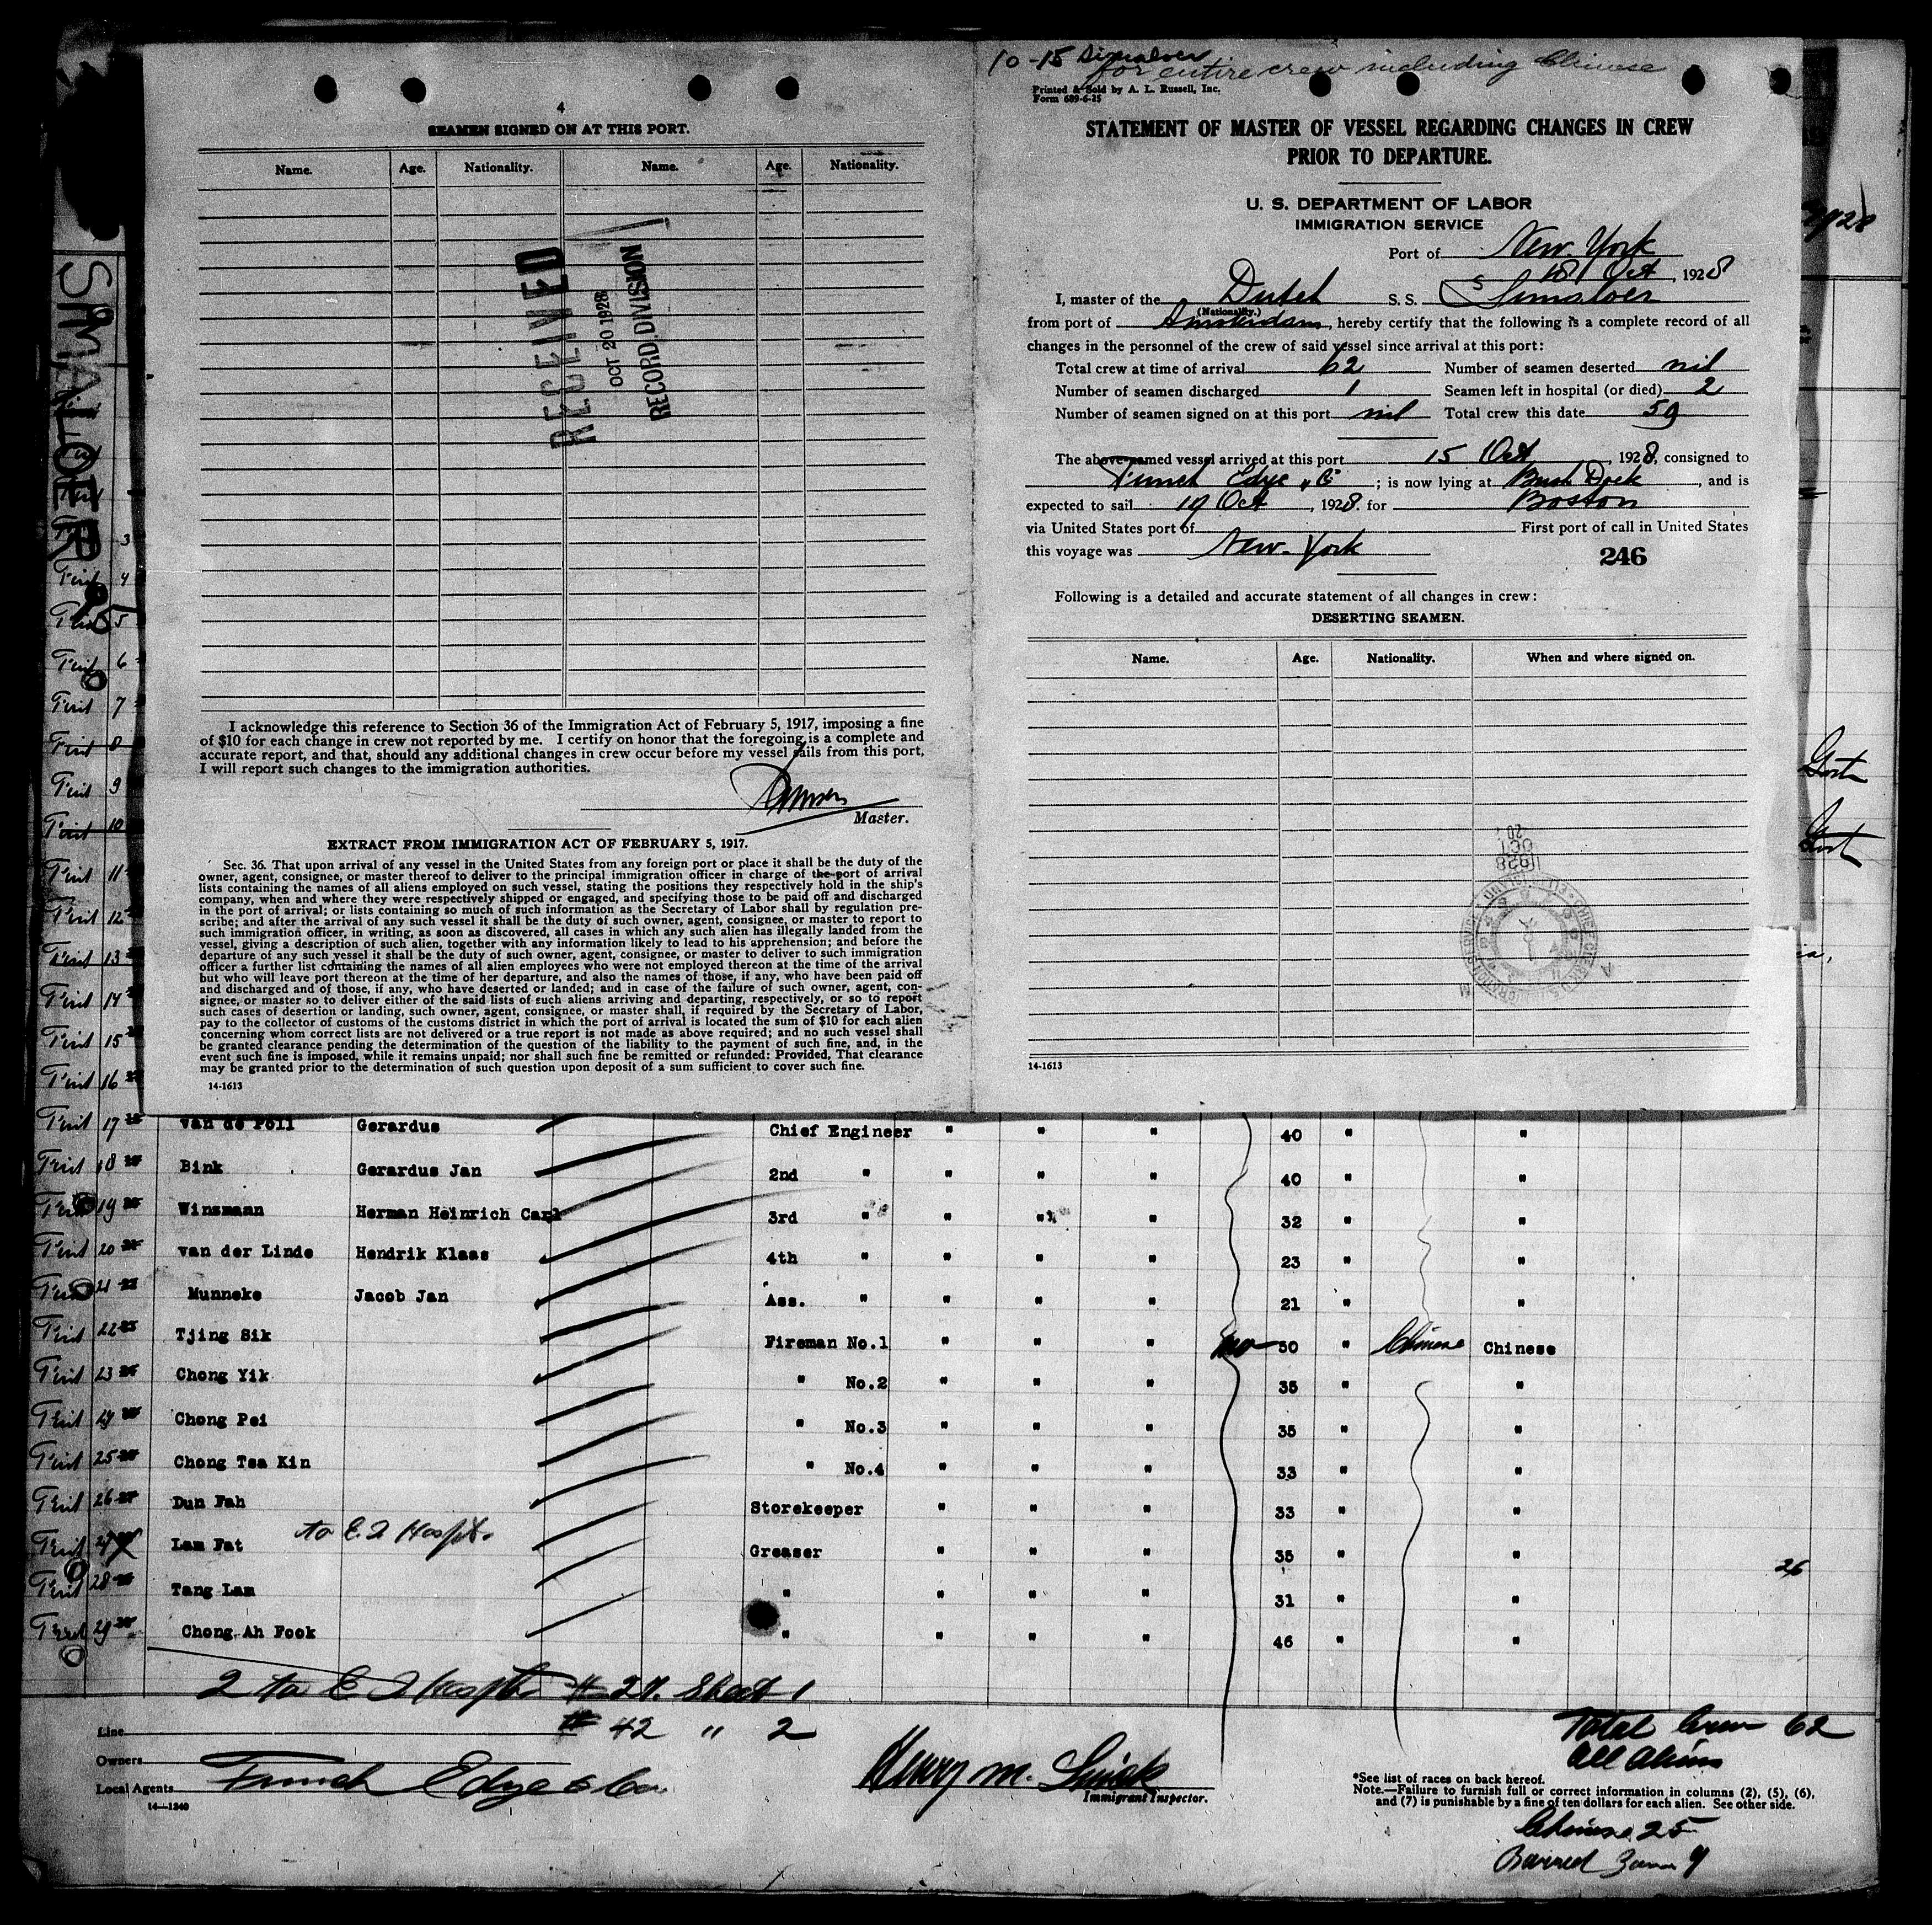 10-15 Simaloer
for entire crew including Chinese
4
SEAMEN SIGNED ON AT THIS PORT.
Name. Age. Nationality. Name. Age. Nationality.
RECEIVED
OCT 20 1928
RECORD DIVISION
I acknowledge this reference to Section 36 of the Immigration Act of February 5, 1917, imposing a fine
of $10 for each change in crew not reported by me. I certify on honor that the foregoing is a complete and
accurate report, and that, should any additional changes in crew occur before my vessel sails from this port,
I will report such changes to the immigration authorities.
Master.
EXTRACT FROM IMMIGRATION ACT OF FEBRUARY 5, 1917.
Sec. 36. That upon arrival of any vessel in the United States from any foreign port or place it shall be the duty of the
owner, agent, consignee, or master thereof to deliver to the principal immigration officer in charge of the port of arrival
lists containing the names of all aliens employed on such vessel, stating the positions they respectively hold in the ship's
company, when and where they were respectively shipped or engaged, and specifying those to be paid off and discharged
in the port of arrival; or lists containing so much of such information as the Secretary of Labor shall by regulation pre-
scribe; and after the arrival of any such vessel it shall be the duty of such owner, agent, consignee, or master to report to
such immigration officer, in writing, as soon as discovered, all cases in which any such alien has illegally landed from the
vessel, giving a description of such alien, together with any information likely to lead to his apprehension; and before the
departure of any such vessel it shall be the duty of such owner, agent, consignee, or master to deliver to such immigration
officer a further list containing the names of all alien employees who were not employed thereon at the time of the arrival
but who will leave port thereon at the time of her departure, and also the names of those, if any, who have been paid off
and discharged and of those, if any, who have deserted or landed; and in case of the failure of such owner, agent, con-
signee, or master so to deliver either of the said lists of such aliens arriving and departing, respectively, or so to report
such cases of desertion or landing, such owner, agent, consignee, or master shall, if required by the Secretary of Labor,
pay to the collector of customs of the customs district in which the port of arrival is located the sum of $10 for each alien
concerning whom correct lists are not delivered or a true report is not made as above required; and no such vessel shall
be granted clearance pending the determination of the question of the liability to the payment of such fine, and, in the
event such fine is imposed, while it remains unpaid; nor shall such fine be remitted or refunded: Provided, That clearance
may be granted prior to the determination of such question upon deposit of a sum sufficient to cover such fine.
14-1613
Printed & Sold by A. L. Russell, Inc.
Form 689-6-25
STATEMENT OF MASTER OF VESSEL REGARDING CHANGES IN CREW
PRIOR TO DEPARTURE.
U. S. DEPARTMENT OF LABOR
IMMIGRATION SERVICE
Port of New-York
18 Oct, 1928
I, master of the Dutch S. S. Simaloer
(Nationality.)
from port of Amsterdam, hereby certify that the following is a complete record of all
changes in the personnel of the crew of said vessel since arrival at this port:
Total crew at time of arrival 62 Number of seamen deserted nil
Number of seamen discharged 1 Seamen left in hospital (or died) 2
Number of seamen signed on at this port nil Total crew this date 59
The above-named vessel arrived at this port 15 Oct, 1928, consigned to
Funch Edye & Co; is now lying at Bush Dock, and is
expected to sail 19 Oct, 1928. for Boston
via United States port of First port of call in United States
this voyage was New-York
246
Following is a detailed and accurate statement of all changes in crew:
DESERTING SEAMEN.
Name. Age. Nationality. When and where signed on.
1928
OCT
20
14-1613
SIMALOER
First 17 van de Poll Gerardus Chief Engineer " " " 40 " "
First 18 Bink Gerardus Jan 2nd " " " " 40 " "
First 19 Winsmann Herman Heinrich Carl 3rd " " " " 32 " "
First 20 van der Linde Hendrik Klaas 4th " " " " 23 " "
First 21 Munneke Jacob Jan Ass. " " " " 21 " "
First 22 Tjing Sik Fireman No.1 " " " 50 " Chinese Chinese
First 23 Chong Yik " No.2 " " " 35 " "
First 24 Chong Pei " No.3 " " " 35 " "
First 25 Chong Tsa Kin " No.4 " " " 33 " "
First 26 Dun Fah Storekeeper " " " 33 " "
First 27 Lam Fat to E.I Hospt. Greaser " " " 35 " "
26
First 28 Tang Lam " " " " 31 " "
First 29 Chong Ah Fook " " " " 46 " "
2 to E I Hospt # 27. Sheet 1
# 42 " 2
Line
Owners
Local Agents Funch Edye & Co
14—1240
Henry M.
Immigrant Inspector.
Total Crew 62
All Aliens
*See list of races on back hereof.
Note.—Failure to furnish full or correct information in columns (2), (5), (6),
and (7) is punishable by a fine of ten dollars for each alien. See other side.
Chinese 25
Barred Zone 9